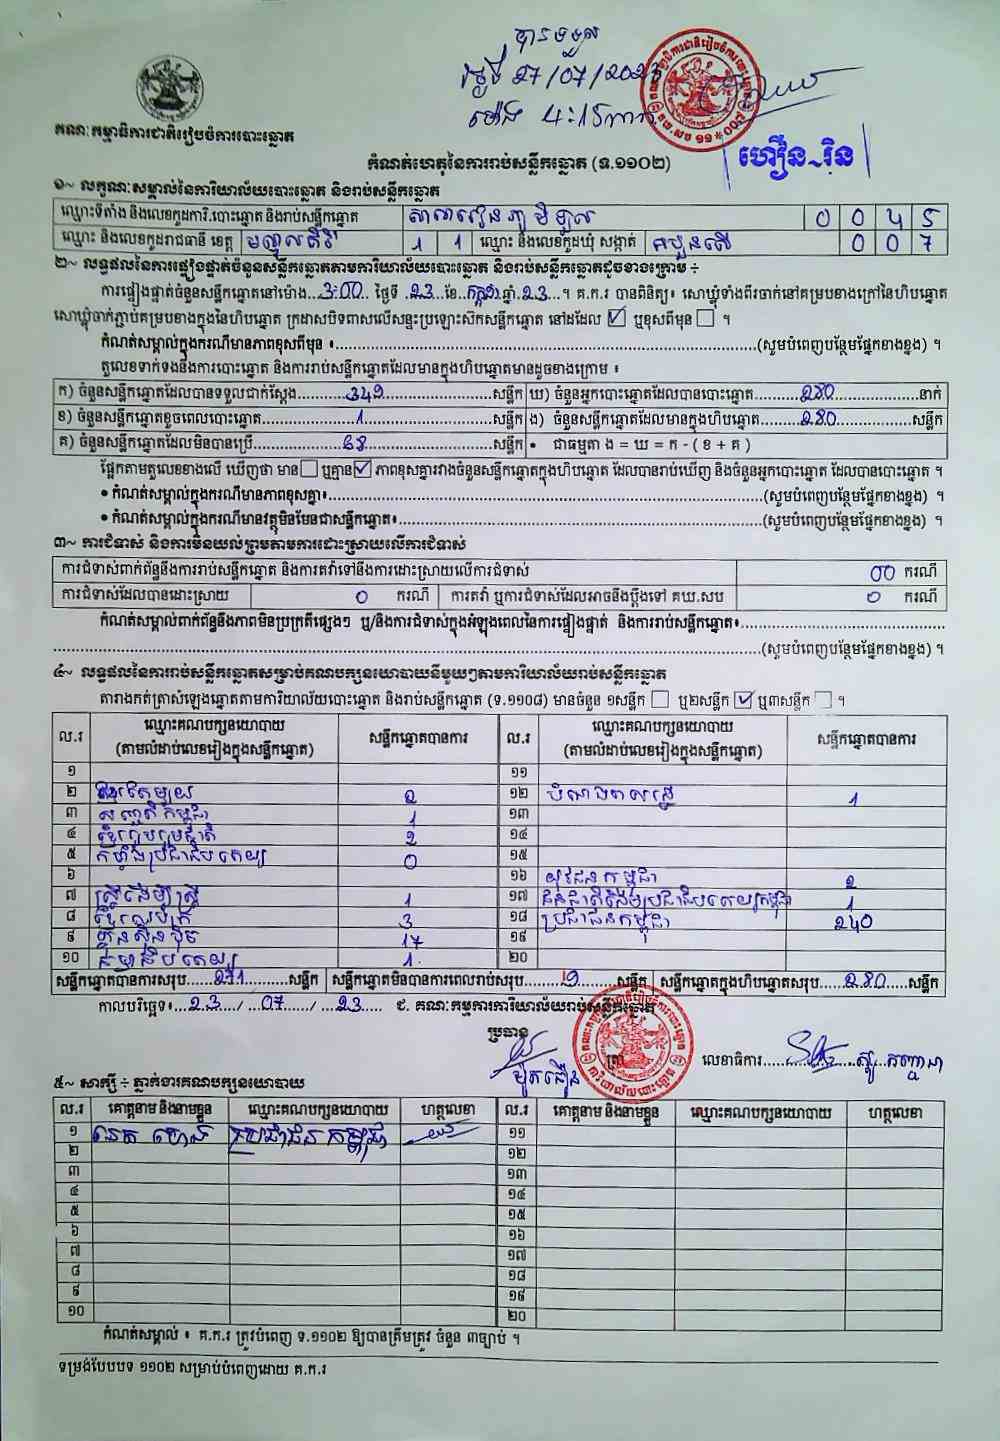 បានទទួល
ថ្ងៃទី 27/07/2023
ម៉ោង 4:15
គណៈកម្មាធិការជាតិរៀបចំការបោះឆ្នោត
ហឿន រិន
កំណត់ហេតុនៃការរាប់សន្លឹកឆ្នោត (ទ.១១០២)
១~ លក្ខណៈសម្គាល់នៃការិយាល័យបោះឆ្នោត និងរាប់សន្លឹកឆ្នោត
ឈ្មោះទីតាំង និងលេខកូដការិ.បោះឆ្នោត និងរាប់សន្លឹកឆ្នោត 0045
ឈ្មោះ និងលេខកូដរាជធានី ខេត្ត មណ្ឌលគិរី 11 ឈ្មោះ និងលេខកូដឃុំ សង្កាត់ 007
២~ លទ្ធផលនៃការផ្ទៀងផ្ទាត់ចំនួនសន្លឹកឆ្នោតតាមការិយាល័យបោះឆ្នោត និងរាប់សន្លឹកឆ្នោតដូចខាងក្រោម ÷
ការផ្ទៀងផ្ទាត់ចំនួនសន្លឹកឆ្នោតនៅម៉ោង 3:00 ថ្ងៃទី 23 ខែ កក្កដា ឆ្នាំ 23 ។ គ.ក.រ បានពិនិត្យ៖ សោឃ្លុំទាំងពីរចាក់នៅគម្របខាងក្រៅនៃហិបឆ្នោត
សោឃ្លុំចាក់ភ្ជាប់គម្របខាងក្នុងនៃហិបឆ្នោត ក្រដាសបិទពាសលើសន្ទះប្រឡោះស៊កសន្លឹកឆ្នោត នៅដដែល ☑ ឬខុសពីមុន ☐ ។
កំណត់សម្គាល់ក្នុងករណីមានភាពខុសពីមុន ៖ (សូមបំពេញបន្ថែមផ្នែកខាងខ្នង) ។
តួលេខទាក់ទងនឹងការបោះឆ្នោត និងការរាប់សន្លឹកឆ្នោតដែលមានក្នុងហិបឆ្នោតមានដូចខាងក្រោម ៖
ក) ចំនួនសន្លឹកឆ្នោតដែលបានទទួលជាក់ស្តែង 349 សន្លឹក ឃ) ចំនួនអ្នកបោះឆ្នោតដែលបានបោះឆ្នោត 280 នាក់
ខ) ចំនួនសន្លឹកឆ្នោតខូចពេលបោះឆ្នោត 1 សន្លឹក ង) ចំនួនសន្លឹកឆ្នោតដែលមានក្នុងហិបឆ្នោត 280 សន្លឹក
គ) ចំនួនសន្លឹកឆ្នោតដែលមិនបានប្រើ 68 សន្លឹក • ជាធម្មតា ង = ឃ = ក - ( ខ + គ )
ផ្អែកតាមតួលេខខាងលើ ឃើញថា មាន ☐ ឬគ្មាន ☑ ភាពខុសគ្នារវាងចំនួនសន្លឹកឆ្នោតក្នុងហិបឆ្នោត ដែលបានរាប់ឃើញ និងចំនួនអ្នកបោះឆ្នោត ដែលបានបោះឆ្នោត ។
• កំណត់សម្គាល់ក្នុងករណីមានភាពខុសគ្នា៖ (សូមបំពេញបន្ថែមផ្នែកខាងខ្នង) ។
• កំណត់សម្គាល់ក្នុងករណីមានវត្ថុមិនមែនជាសន្លឹកឆ្នោត៖ (សូមបំពេញបន្ថែមផ្នែកខាងខ្នង) ។
៣~ ការជំទាស់ និងការមិនយល់ព្រមតាមការដោះស្រាយលើការជំទាស់
ការជំទាស់ពាក់ព័ន្ធនឹងការរាប់សន្លឹកឆ្នោត និងការតវ៉ាទៅនឹងការដោះស្រាយលើការជំទាស់ 00 ករណី
ការជំទាស់ដែលបានដោះស្រាយ 0 ករណី ការតវ៉ា ឬការជំទាស់ដែលអាចនឹងប្តឹងទៅ គឃ.សប 0 ករណី
កំណត់សម្គាល់ពាក់ព័ន្ធនឹងភាពមិនប្រក្រតីផ្សេងៗ ឬ/និងការជំទាស់ក្នុងអំឡុងពេលនៃការផ្ទៀងផ្ទាត់ និងការរាប់សន្លឹកឆ្នោត៖
(សូមបំពេញបន្ថែមផ្នែកខាងខ្នង) ។
៤~ លទ្ធផលនៃការរាប់សន្លឹកឆ្នោតសម្រាប់គណបក្សនយោបាយនីមួយៗតាមការិយាល័យរាប់សន្លឹកឆ្នោត
តារាងកត់ត្រាសំឡេងឆ្នោតតាមការិយាល័យបោះឆ្នោត និងរាប់សន្លឹកឆ្នោត (ទ.១១០៨) មានចំនួន ១សន្លឹក ☐ ឬ២សន្លឹក ☑ ឬ៣សន្លឹក ☐ ។
ល.រ ឈ្មោះគណបក្សនយោបាយ (តាមលំដាប់លេខរៀងក្នុងសន្លឹកឆ្នោត) សន្លឹកឆ្នោតបានការ ល.រ ឈ្មោះគណបក្សនយោបាយ (តាមលំដាប់លេខរៀងក្នុងសន្លឹកឆ្នោត) សន្លឹកឆ្នោតបានការ
១ ១១
២ ឯករាជ 2 ១២ 1
៣ សញ្ជាតិកម្ពុជា 1 ១៣
៤ ខ្មែររួបរួមជាតិ 2 ១៤
៥ កម្លាំងប្រជាធិបតេយ្យ 0 ១៥
៦ ១៦ យុវជនកម្ពុជា 2
៧ ស្ត្រីដើម្បីស្ត្រី 1 ១៧ ជនជាតិដើមប្រជាធិបតេយ្យកម្ពុជា 1
៨ ខ្មែរ 3 ១៨ ប្រជាជនកម្ពុជា 240
៩ ហ៊្វុនស៊ិនប៉ិច 17 ១៩
១០ ធម្មាធិបតេយ្យ 1 ២០
សន្លឹកឆ្នោតបានការសរុប 271 សន្លឹក សន្លឹកឆ្នោតមិនបានការពេលរាប់សរុប 9 សន្លឹក សន្លឹកឆ្នោតក្នុងហិបឆ្នោតសរុប 280 សន្លឹក
កាលបរិច្ឆេទ៖ 23 / 07 / 23 ជ. គណៈកម្មការការិយាល័យរាប់សន្លឹកឆ្នោត
ប្រធាន
ត្រា លេខាធិការ
៥~ សាក្សី ÷ ភ្នាក់ងារគណបក្សនយោបាយ
ល.រ គោត្តនាម និងនាមខ្លួន ឈ្មោះគណបក្សនយោបាយ ហត្ថលេខា ល.រ គោត្តនាម និងនាមខ្លួន ឈ្មោះគណបក្សនយោបាយ ហត្ថលេខា
១ ប្រជាជនកម្ពុជា ១១
២ ១២
៣ ១៣
៤ ១៤
៥ ១៥
៦ ១៦
៧ ១៧
៨ ១៨
៩ ១៩
១០ ២០
កំណត់សម្គាល់ ៖ គ.ក.រ ត្រូវបំពេញ ទ.១១០២ ឱ្យបានត្រឹមត្រូវ ចំនួន ៣ច្បាប់ ។
ទម្រង់បែបបទ ១១០២ សម្រាប់បំពេញដោយ គ.ក.រ